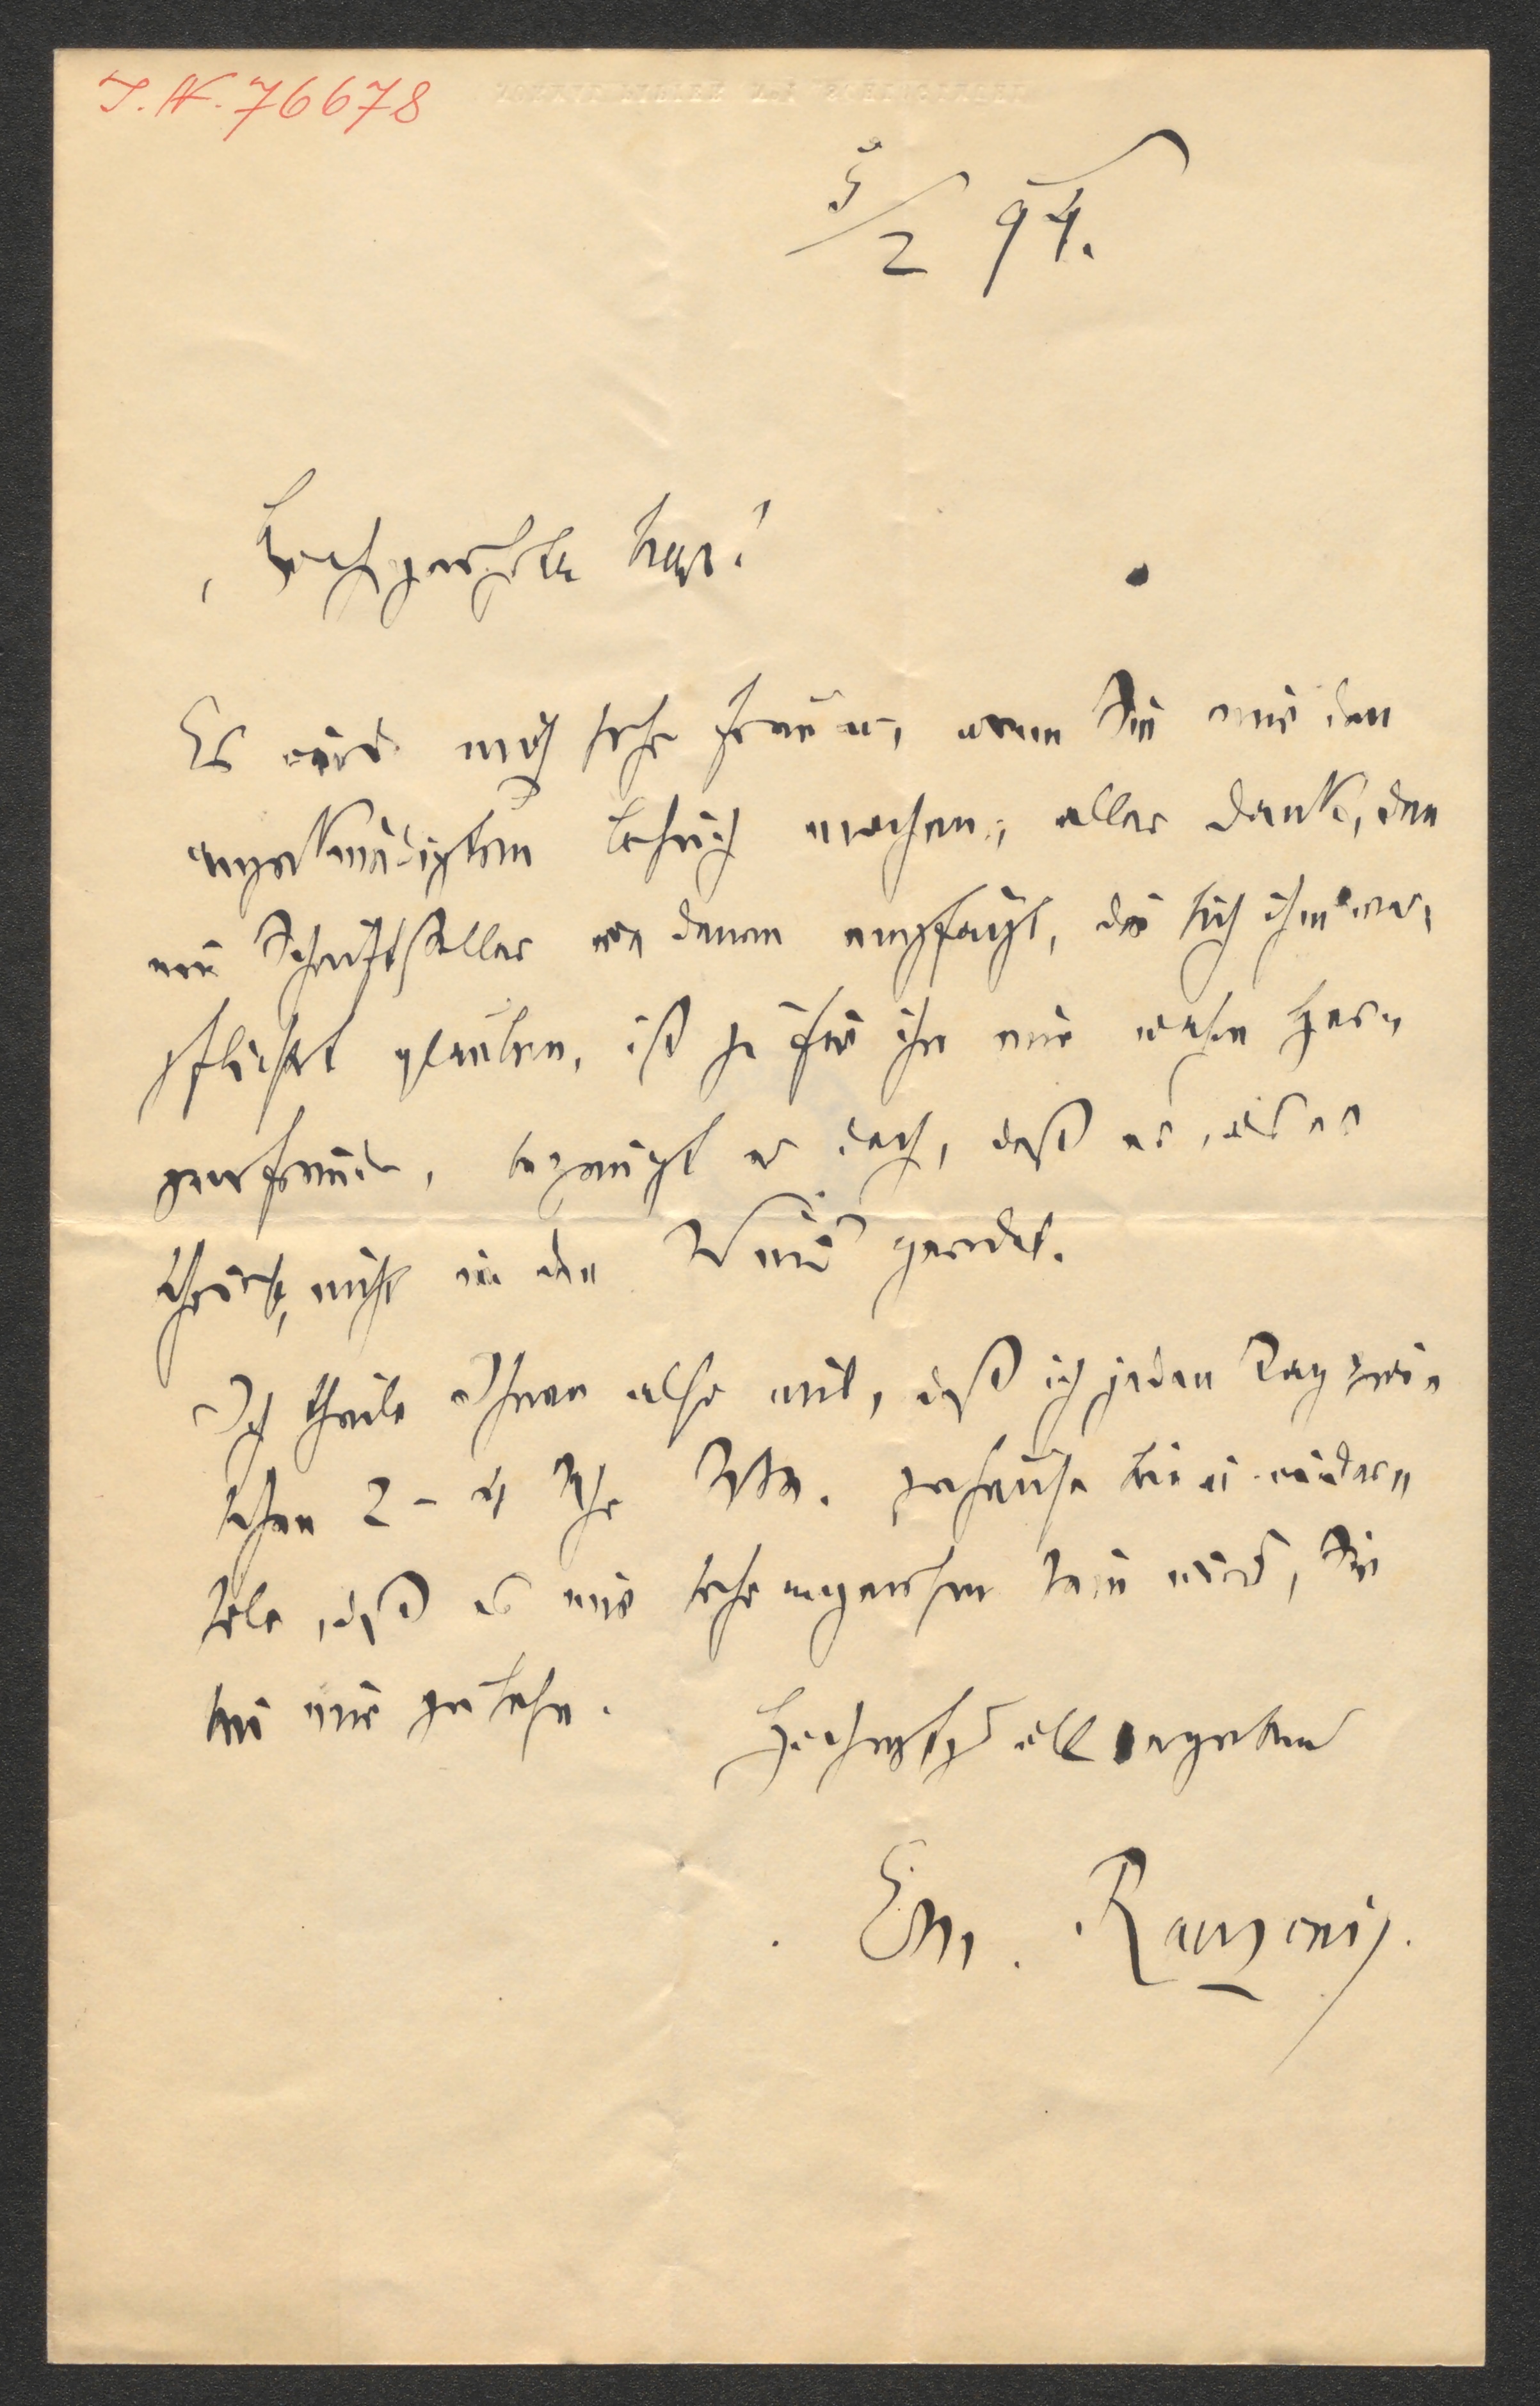 I. N. 76678
5/2 94.
Hochgeehrter Herr!
Es wird mich sehr freuen, wenn Sie mir den
angekündigten Besuch machen; aller Dank, den
ein Schriftsteller von denen empfängt, die sich ihm ver-
pflichtet glauben, ist ja für ihn eine wahre Her-
zensfreude, bezeugt er doch, daß er, was er
schrieb, nicht in den Wind geredet.
Ich theile Ihnen also mit, daß ich jeden Tag zwi-
schen 2 - 4 Uhr NM. zuhause bin u. wieder-
hole, daß es mir sehr angenehm sein wird, Sie
bei mir zu sehen.
Hochachtgsvoll ergeben
Em. Ranzoni.